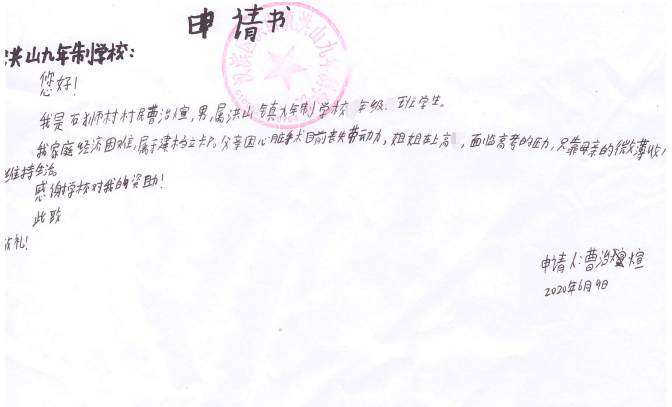 申请书
洪山九年制学校:
您好!
我是石狮村村民曹治煊,男,属洪山镇九年制学校 年级 班学生。
我家庭经济困难,属于建档立卡户。父亲因心脏手术目前丧失劳动力,姐姐在上高 ,面临高考的压力,只靠母亲的微薄收入
维持生活。
感谢学校对我的资助!
此致
敬礼!
申请人:曹治煊
2020年6月9日
洪山九